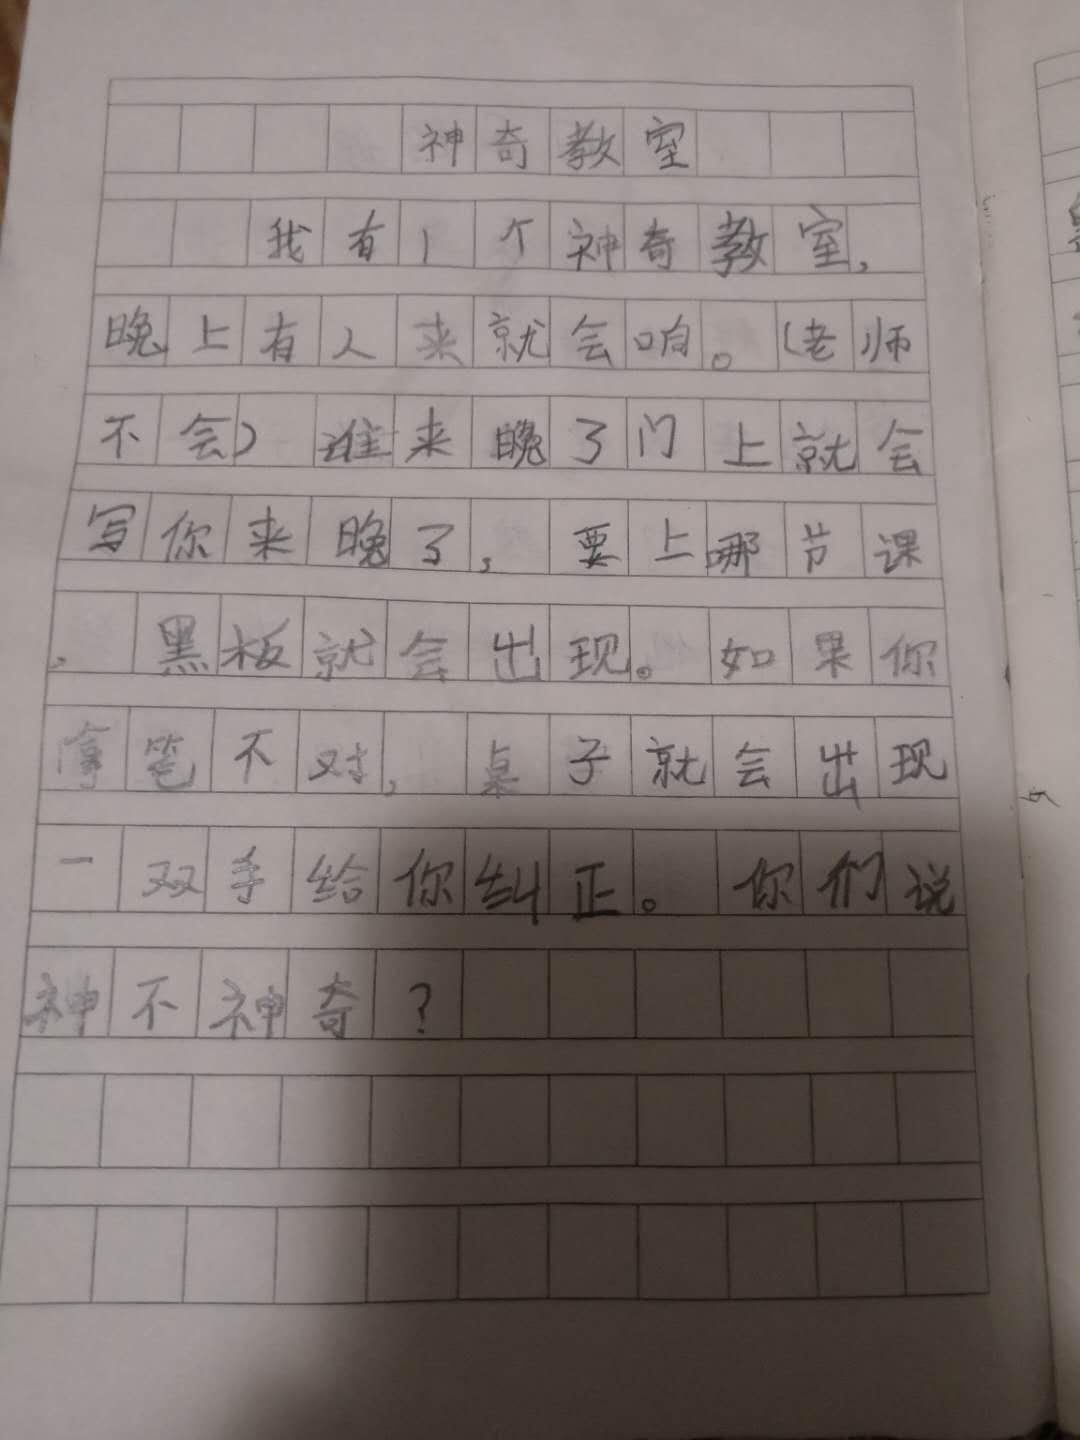 神奇教室
我有1个神奇教室，
晚上有人来就会响。（老师
不会）谁来晚了门上就会
写你来晚了，要上哪节课
，黑板就会出现。如果你
拿笔不对，桌子就会出现
一双手给你纠正。你们说
神不神奇？